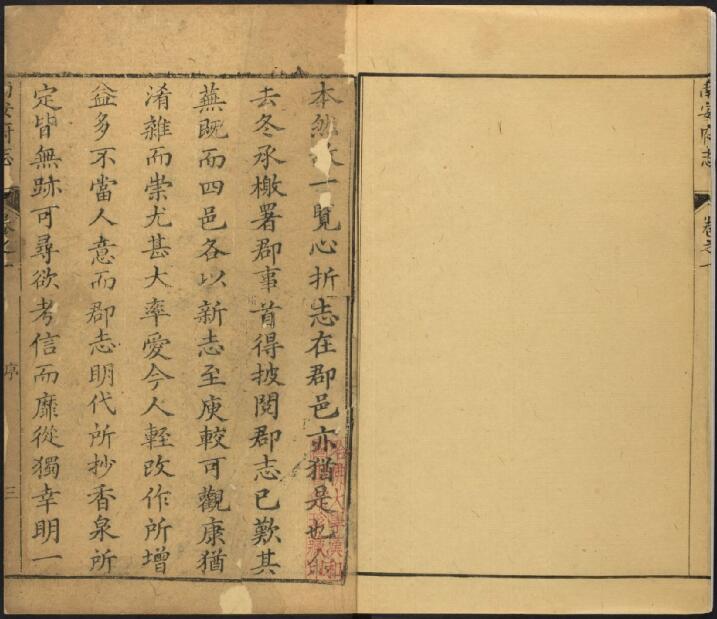 南安府志 卷之一
本然一覽心折志在郡邑亦猶是也
去冬承檄署郡事首得披閱郡志已歎其
蕪既而四邑各以新志至庾較可觀康猶
淆雜而崇尤甚大率愛今人輕改作所增
益多不當人意而郡志明代所抄香泉所
定皆無跡可尋欲考信而靡從獨幸明一
南安府志 卷之一 序 三
哈佛大學漢和
圖書館珍藏印